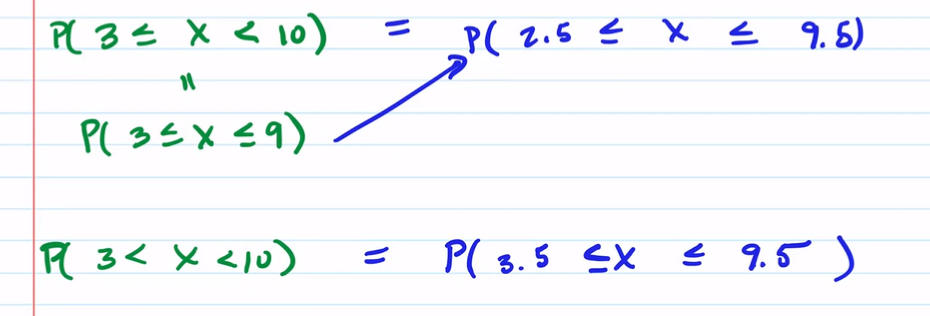 P( 3 ≤ X < 10) = P( 2.5 ≤ X ≤ 9.5)
=
P( 3 ≤ X ≤ 9)
P( 3 < X < 10) = P( 3.5 ≤ X ≤ 9.5 )